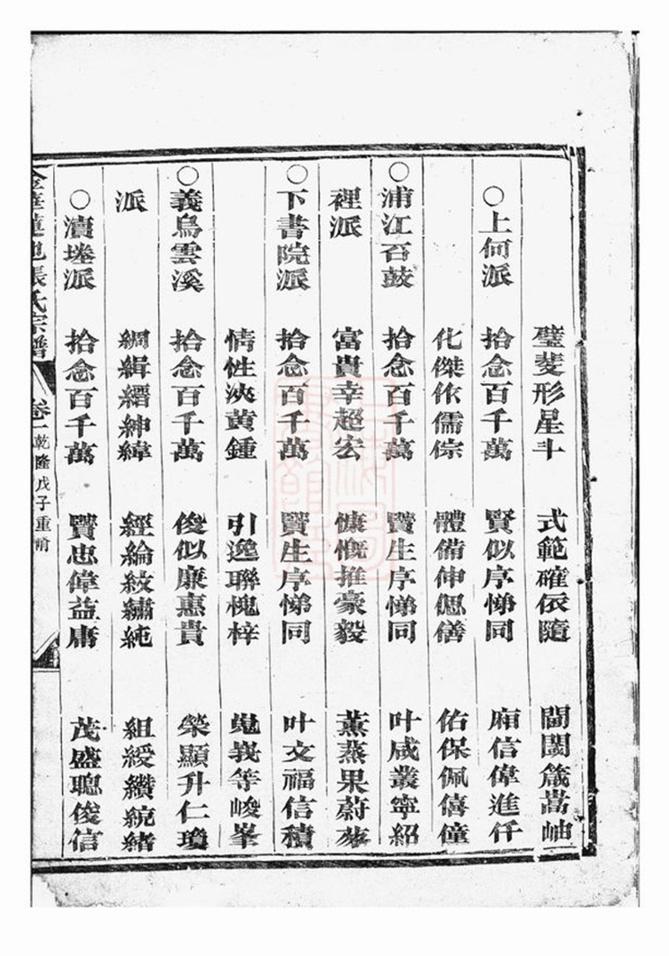 璧斐形星斗 式範確依隨 閶閩箴嵩岫
○上何派 拾念百千萬 賢似序悌同 廂信偉進仟
化傑依儒倧 體備伸偲僐 佑保佩僖僮
○浦江石鼓 拾念百千萬 贒生序悌同 叶咸叢寧紹
裡派 富貴幸超宏 慷慨推豪毅 薰蒸果蔚
○下書院派 拾念百千萬 贒生序悌同 叶文福信積
情性淡黃鍾 引逸聯槐梓 等峻峯
○義烏雲溪 拾念百千萬 俊似廉惠貴 榮顯升仁瓊
派 綢緝縉紳緯 經綸紋繡純 組綬纘統緒
○瀆塘派 拾念百千萬 贒忠偉益庸 茂盛聰俊信
金華蓮池張氏宗譜 卷一 乾隆戊子重